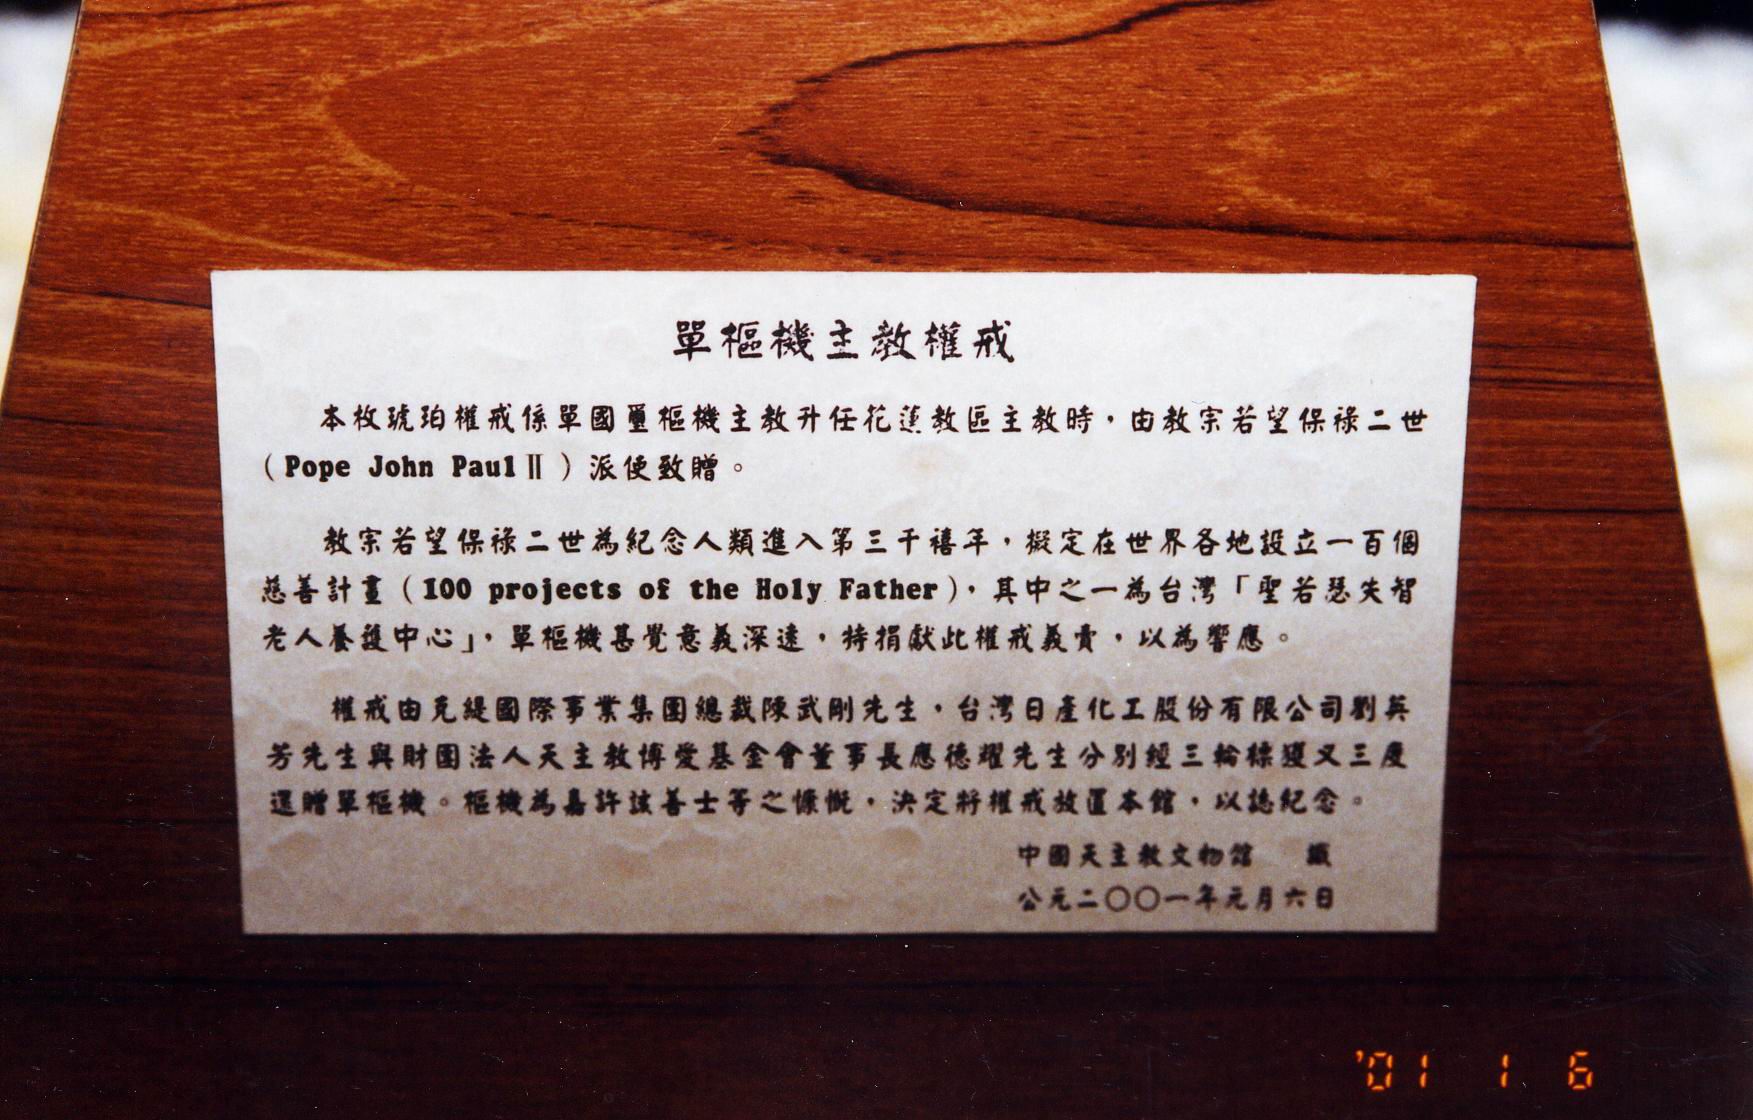 單樞機主教權戒
本枚琥珀權戒係單國璽樞機主教升任花蓮教區主教時，由教宗若望保祿二世
（Pope John Paul Ⅱ）派使致贈。
教宗若望保祿二世為紀念人類進入第三千禧年，擬定在世界各地設立一百個
慈善計畫（100 projects of the Holy Father），其中之一為台灣「聖若瑟失智
老人養護中心」，單樞機甚覺意義深遠，特捐獻此權戒義賣，以為響應。
權戒由克緹國際事業集團總裁陳武剛先生，台灣日產化工股份有限公司劉英
芳先生與財團法人天主教博愛基金會董事長應德耀先生分別經三輪標獲又三度
還贈單樞機。樞機為嘉許該善士等之慷慨，決定將權戒放置本館，以誌紀念。
中國天主教文物館　識
公元二〇〇一年元月六日
'01 1 6